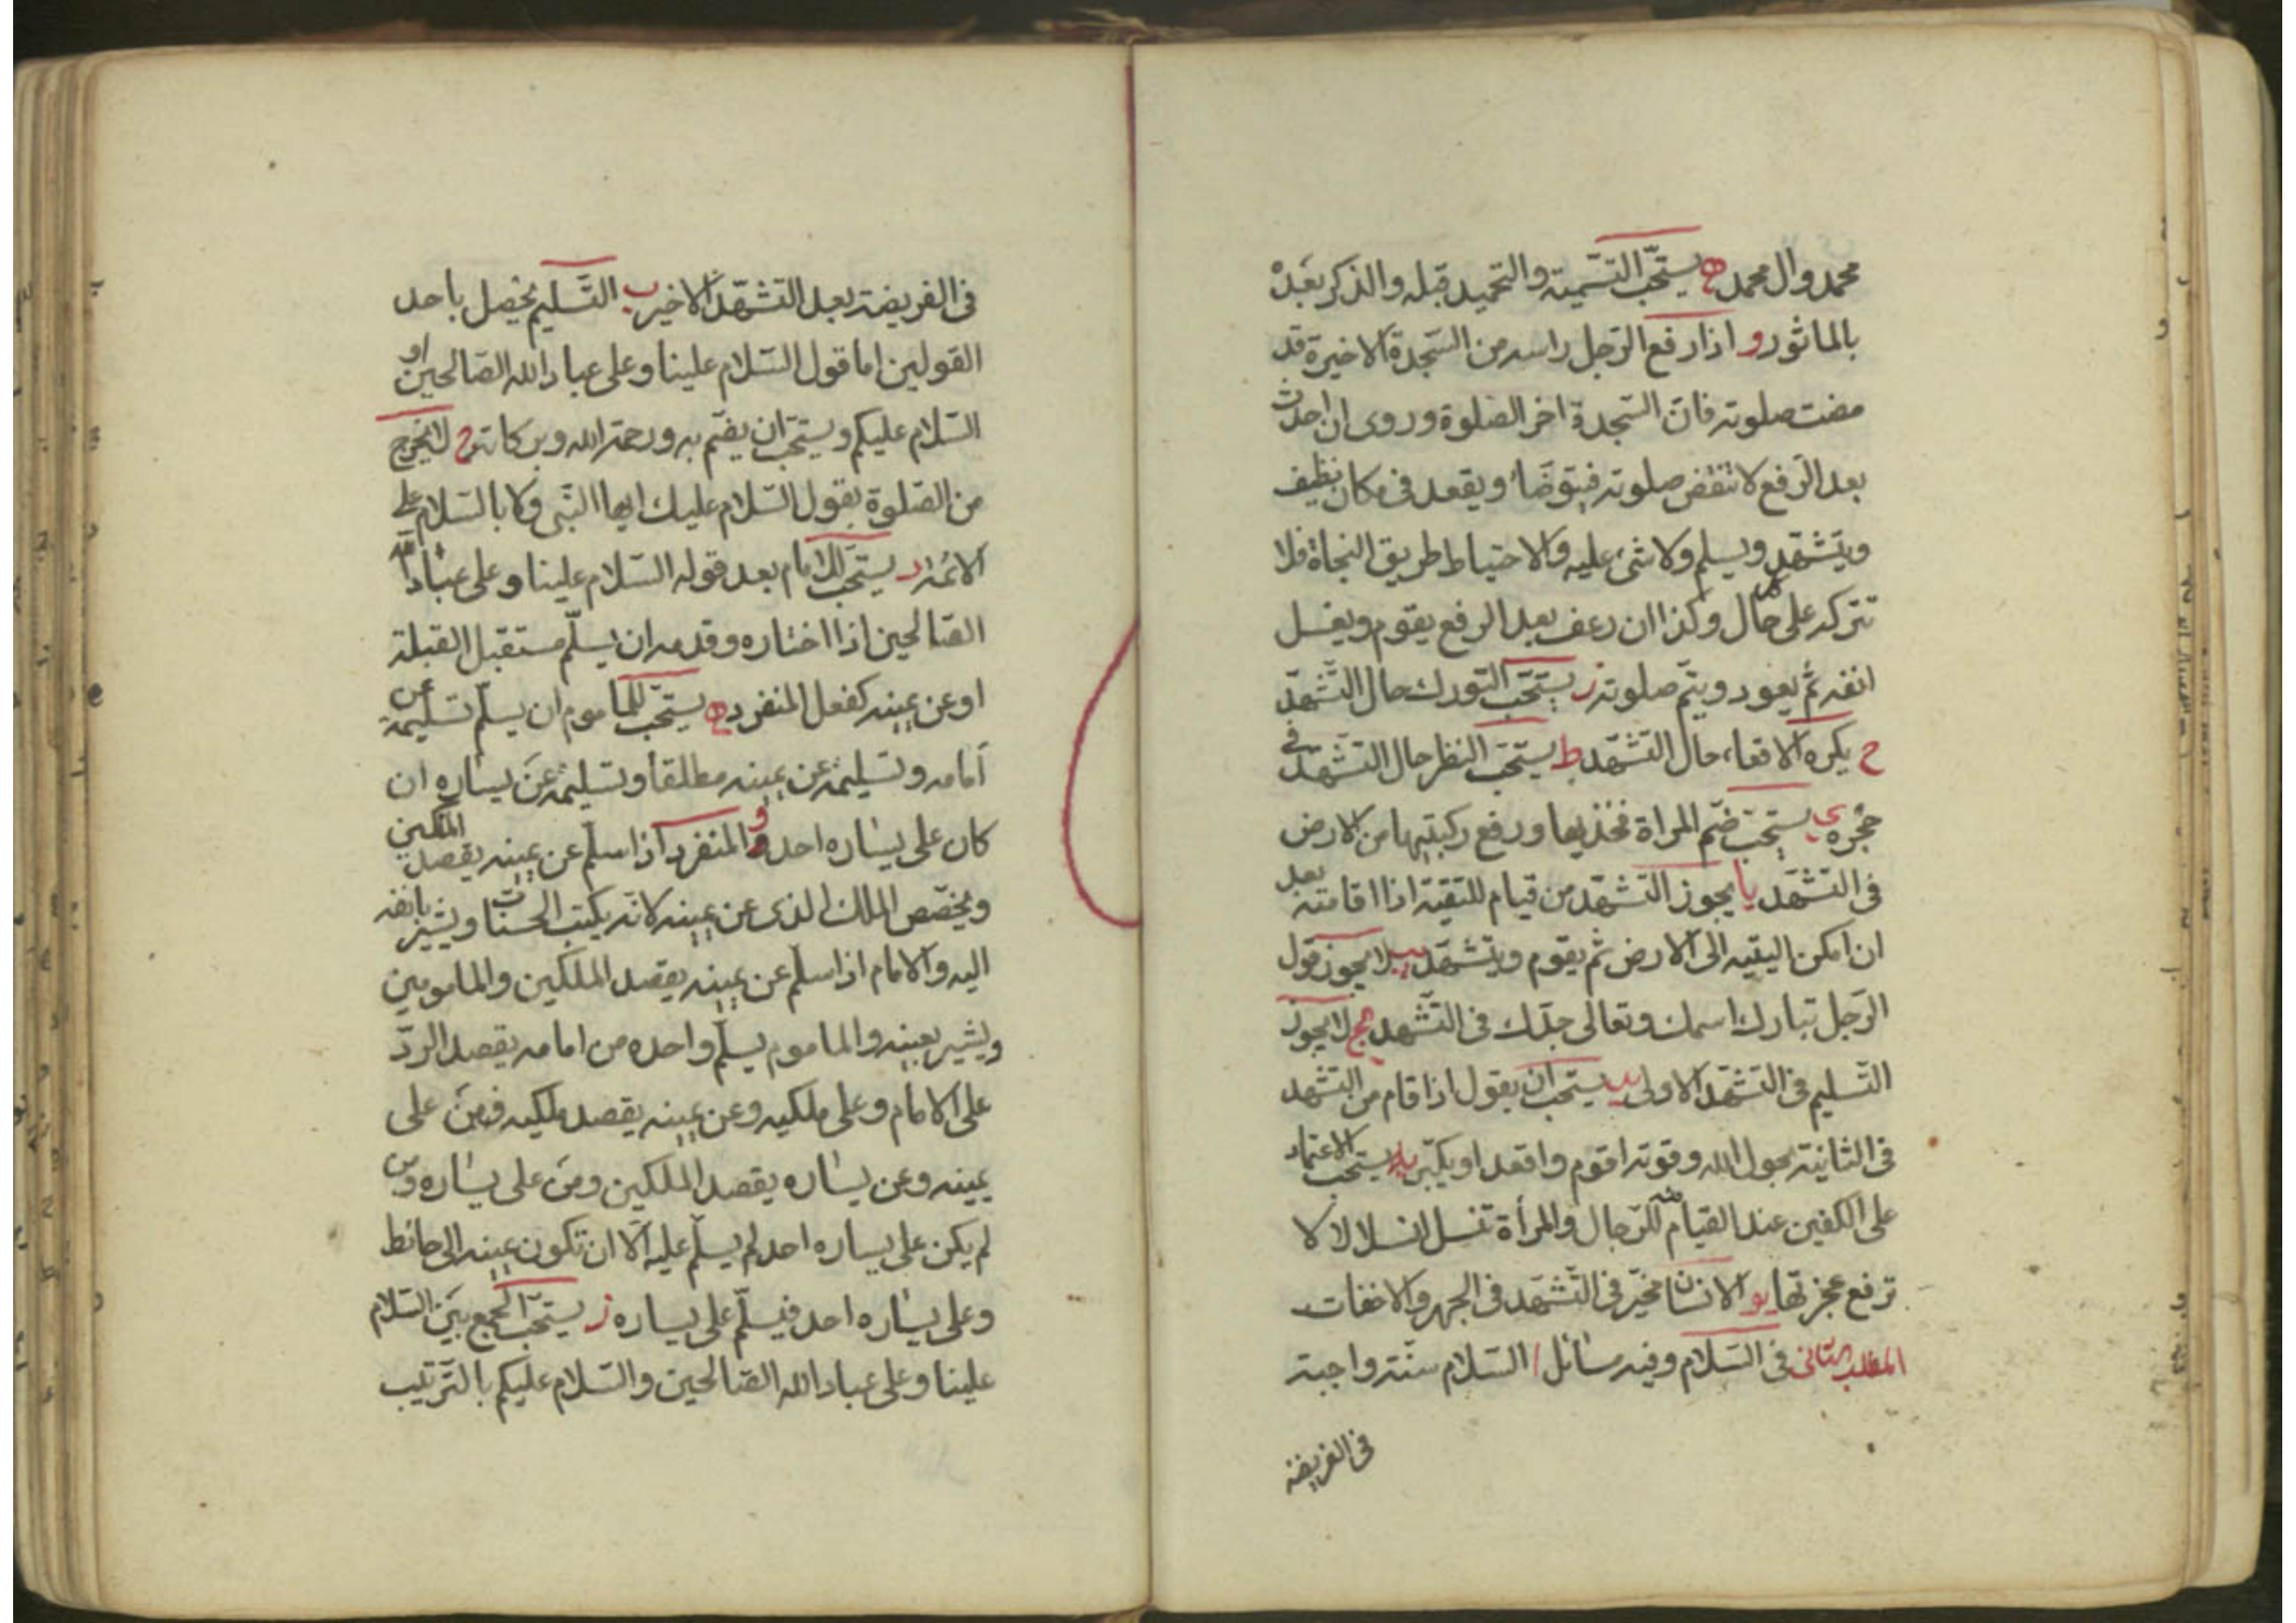 محمد وال محمد ه يستحبّ التسّمية والتحميد قبله والذكر بعَده
بالماثور و اذا رفع الرّجل راسه من السّجدة الاخيرة قد
مضت صلوته فانّ السّجدة اخر الصّلوة وروى ان احدث
بعد الرّفع لا تنقض صلوته فيتوضّأ ويقعد فى مكان نظيف
ويتشهّد ويسلم ولا شئ عليه والاحتياط طريق النجاة فلا
تتركه على حال وكذا ان رعف بعد الرفع يقوم ويغسل
انفه ثم يعود ويتم صلوته ز يستحّب التورك حال التّشهّد
ح يكره الاقعاء حال التشّهد ط يستحّب النظر حال التّشهّد فى
حجره ى يستحّب ضّم المراة فخذيها ورفع ركبتيها من الارض
فى التشّهد يا يجوز التشّهد من قيام للتقية اذا اقامته بعد
ان امكن اليقيه الى الارض ثم يقوم ويتشهّد يب لا يجوز قول
الرّجل تبارك اسمك وتعالى جدّك فى التّشهد يج لا يجوز
التّسليم فى التّشهّد الاولى يد يستحب ان يقول اذا قام من التشهد
فى الثانية بحول الله وقوته اقوم واقعد او يكبّر يه يستحّب الاعتماد
على الكفين عند القيام منه للرّجال والمرأة تنسل انسلالا لا
ترفع عجزتها يو الانسان مخيّر فى التّشهّد فى الجهر والاخفات
المطلب الثانى فى السّلام وفيه مسائل ا السّلام سنّة واجبة
فى الفريضة
فى الفريضة بعد التّشهّد الاخير ب التّسليم يحصل باحد
القولين اما قول السّلام علينا وعلى عباد الله الصّالحين او
السّلام عليكم ويستحّب ان يضّم به ورحمة الله وبركاته ج لا يخرج
من الصّلوة بقول السّلام عليك ايها النّبى ولا بالسّلام على
الائمة د يستحّب للامام بعد قوله السّلام علينا وعلى عباد الله
الصّالحين اذا اختاره وقدمه ان يسلّم مستقبل القبلة
او عن يمينه كفعل المنفرد ه يستحّب للماموم ان يسلّم تسليمة عن
أمامه وتسليمة عن يمينه مطلقاً وتسليمة عن يساره ان
كان على يساره احد و والمنفرد اذا سلّم عن يمينه يقصد الملكين
ويخصّص الملك الذى عن يمينه لانّه يكتب الحسنات ويشير بانفه
اليه والامام اذا سلّم عن يمينه يقصد الملكين والمامومين
ويشير بعينه والماموم يسلّم واحده من امامه يقصد الردّ
على الامام وعلى ملكيه وعن يمينه يقصد ملكيه فمن على
يمينه وعن يساره يقصد الملكين ومن على يساره ومن
لم يكن على يساره احد لم يسلّم عليه الّا ان تكون يمينه الى حائط
وعلى يساره احد فيسلّم على يساره ز يستحّب الجمع بين السّلام
علينا وعلى عباد الله الصّالحين والسّلام عليكم بالتّرتيب